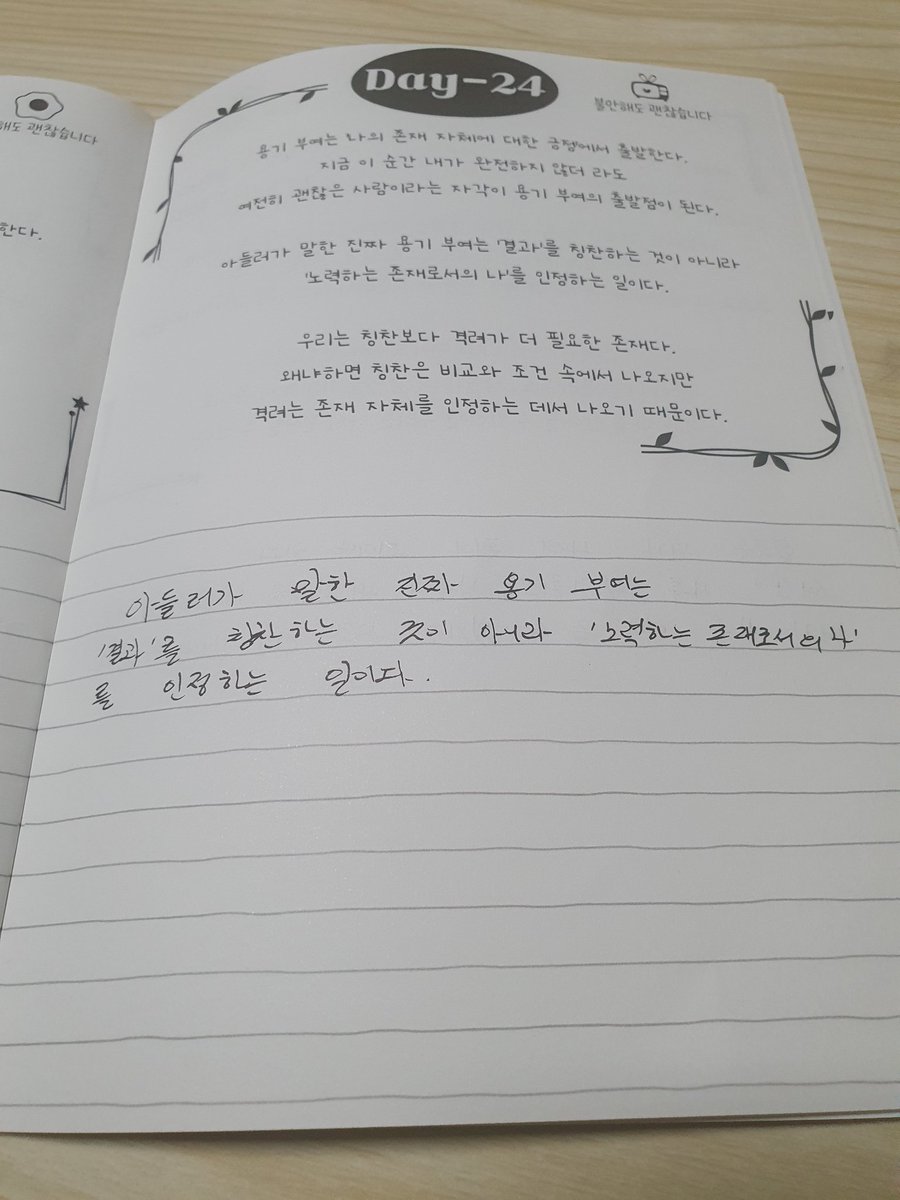 해도 괜찮습니다
한다.
Day-24
불안해도 괜찮습니다
용기 부여는 나의 존재 자체에 대한 긍정에서 출발한다.
지금 이 순간 내가 완전하지 않더 라도
여전히 괜찮은 사람이라는 자각이 용기 부여의 출발점이 된다.
아들러가 말한 진짜 용기 부여는 '결과'를 칭찬하는 것이 아니라
'노력하는 존재로서의 나'를 인정하는 일이다.
우리는 칭찬보다 격려가 더 필요한 존재다.
왜냐하면 칭찬은 비교와 조건 속에서 나오지만
격려는 존재 자체를 인정하는 데서 나오기 때문이다.
아들러가 말한 진짜 용기 부여는
'결과'를 칭찬하는 것이 아니라 '노력하는 존재로서의 나'
를 인정하는 일이다.